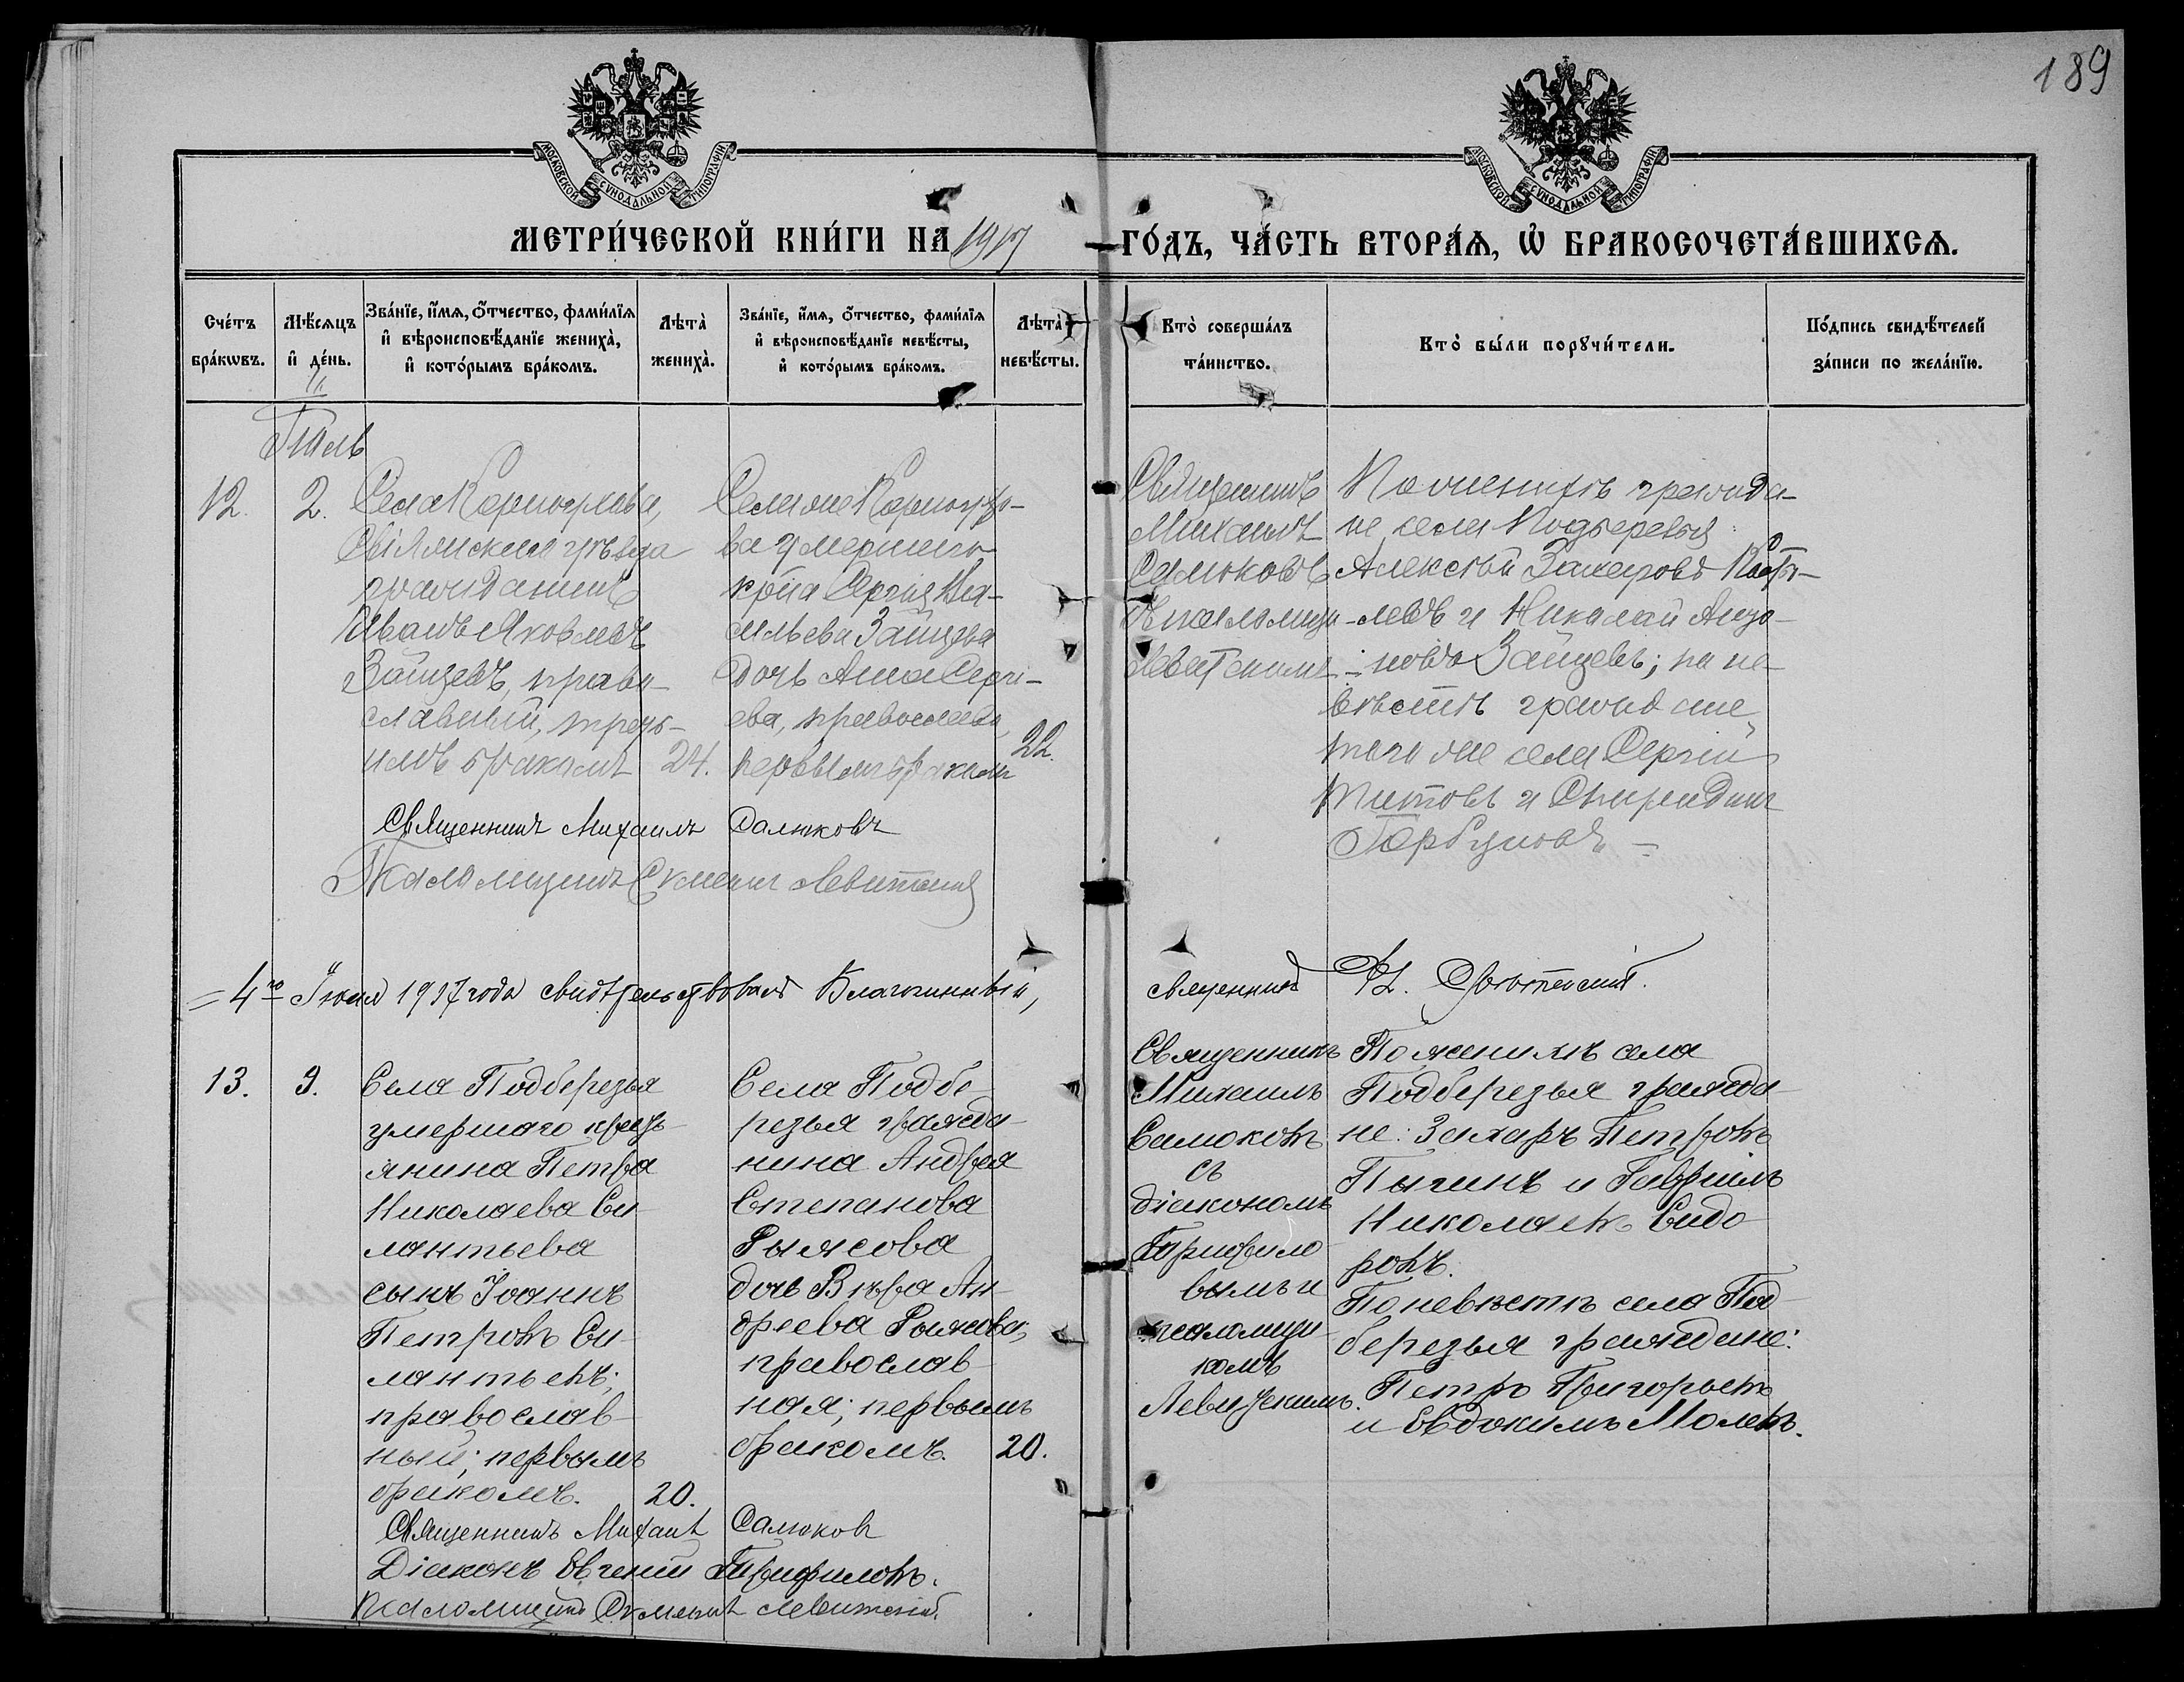 189
МОСКОВСКОЙ СУНОДАЛЬНОЙ ТИПОГРАФІИ
МОСКОВСКОЙ СУНОДАЛЬНОЙ ТИПОГРАФІИ
МЕТРИ́ЧЕСКОЙ КНИ́ГИ НА 1917 ГО́ДЪ, ЧА́СТЬ ВТОРА́Ѧ, Ѽ БРАКОСОЧЕТА́ВШИХСѦ.
Сче́тъ
бра́кѡвъ.
Мѣ́сѧцъ
и҆ де́нь.
Зва́нїе, и҆́мѧ, ѻ҆́тчество, фами́лїѧ
и҆ вѣроисповѣ́данїе жениха̀,
и҆ кото́рымъ бра́комъ.
Лѣта̀
жениха̀.
Зва́нїе, и҆́мѧ, ѻ҆́тчество, фами́лїѧ
и҆ вѣроисповѣ́данїе невѣ́сты,
и҆ кото́рымъ бра́комъ.
Лѣта̀
невѣ́сты.
Кто̀ соверша́лъ
та́инство.
Кто̀ бы́ли порꙋчи́тели.
По́дпись свидѣ́телей
за́писи по жела́нїю.
12.
2.
Села
уѣзда
гражданинъ
Иванъ Яковлевъ
Зайцевъ, право-
славный,
имъ бракомъ
24.
Села
ва умершаго
Сергія Ва-
сильева Зайцева
дочь Анна Серги-
ева, православн,
первымъ бракомъ
22.
Священникъ
Михаилъ
Салюковъ
Левитскимъ
По женихѣ гражда-
не села Подберезья
Алексѣй Захаровъ
и Николай
Зайцевъ; по не-
вѣстѣ граждане
того же села Сергій
Титовъ и Спиридонъ
Горбуновъ
Священникъ Михаилъ Салюковъ
Псаломщикъ Левитскій
=4го Іюля 1917 года свидѣтельствовалъ Благочинный, священникъ
13.
9.
Села Подберезья
умершаго кресть-
янина Петра
Николаева Си-
лантьева
сынъ Іоаннъ
Петровъ Си-
лантьевъ;
православ-
ный; первымъ
бракомъ.
20.
Села Подбе-
резья гражда-
нина Андрея
Степанова
Рыжова
дочь Вѣра Ан-
дреева Рыжова,
православ-
ная; первымъ
бракомъ.
20.
Священникъ
Михаилъ
Салюковъ
съ
діакономъ
Трифило-
вымъ и
псаломщи-
комъ
Левитскимъ.
По женихѣ села
Подберезья гражда-
не: Захаръ Петровъ
Пыгинъ и Гавріилъ
Николаевъ Сидо-
ровъ.
По невѣстѣ села Под-
березья граждане:
Петръ Григорьевъ
и Евдокимъ Молевъ.
Священникъ Михаилъ Салюковъ
Діаконъ Евгеній Трифиловъ.
Псаломщикъ Левитскій.